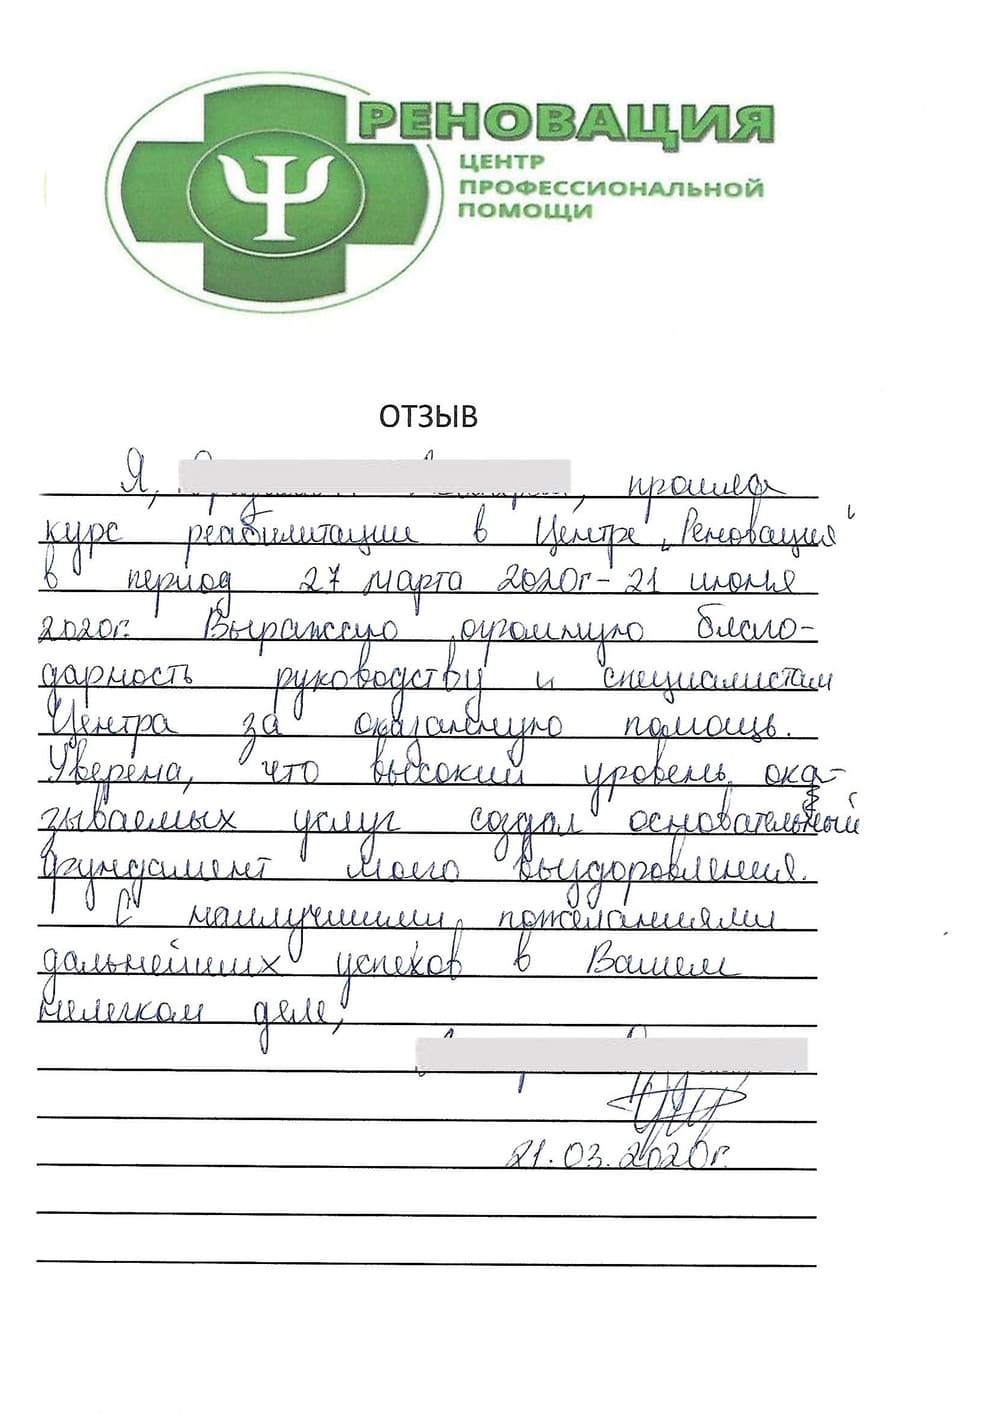 РЕНОВАЦИЯ
ЦЕНТР
ПРОФЕССИОНАЛЬНОЙ
ПОМОЩИ
ОТЗЫВ
Я, , прошла
курс реабилитации в Центре „Реновация“
в период 27 марта 2020г - 21 июня
2020г. Выражаю огромную благо-
дарность руководству и специалистам
Центра за оказанную помощь.
Уверена, что высокий уровень ока-
зываемых услуг создал основательный
фундамент моего выздоровления.
С наилучшими пожеланиями
дальнейших успехов в Вашем
нелегком деле,
21.03.2020г.